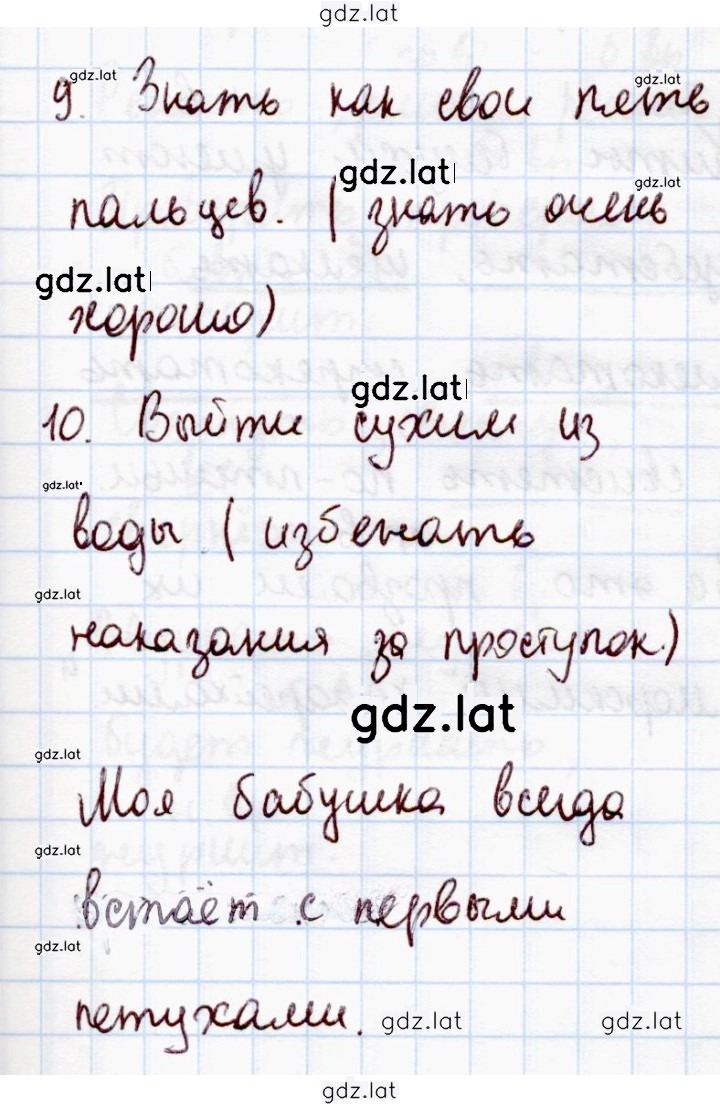 gdz.lat
gdz.lat gdz.lat
9. Знать как свои пять
gdz.lat gdz.lat
пальцев. (знать очень
gdz.lat
хорошо)
gdz.lat
10. Выйти сухим из
gdz.lat
воды (избежать
gdz.lat
наказания за проступок.)
gdz.lat
gdz.lat
Моя бабушка всегда
gdz.lat
встаёт с первыми
gdz.lat
петухами. gdz.lat gdz.lat
gdz.lat